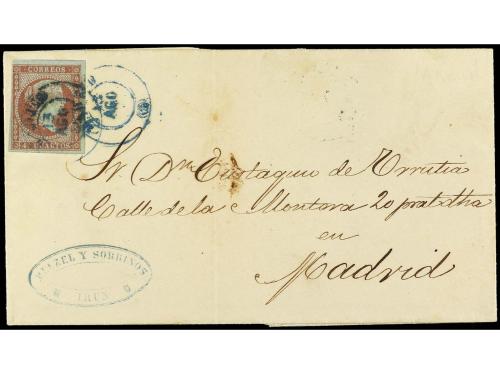 CORREOS
13
AGO
Sr. Dn. Eustaquio de Urrutia
Calle de la Montera 20 pral dha
en
Madrid
Y SOBRINOS
IRUN